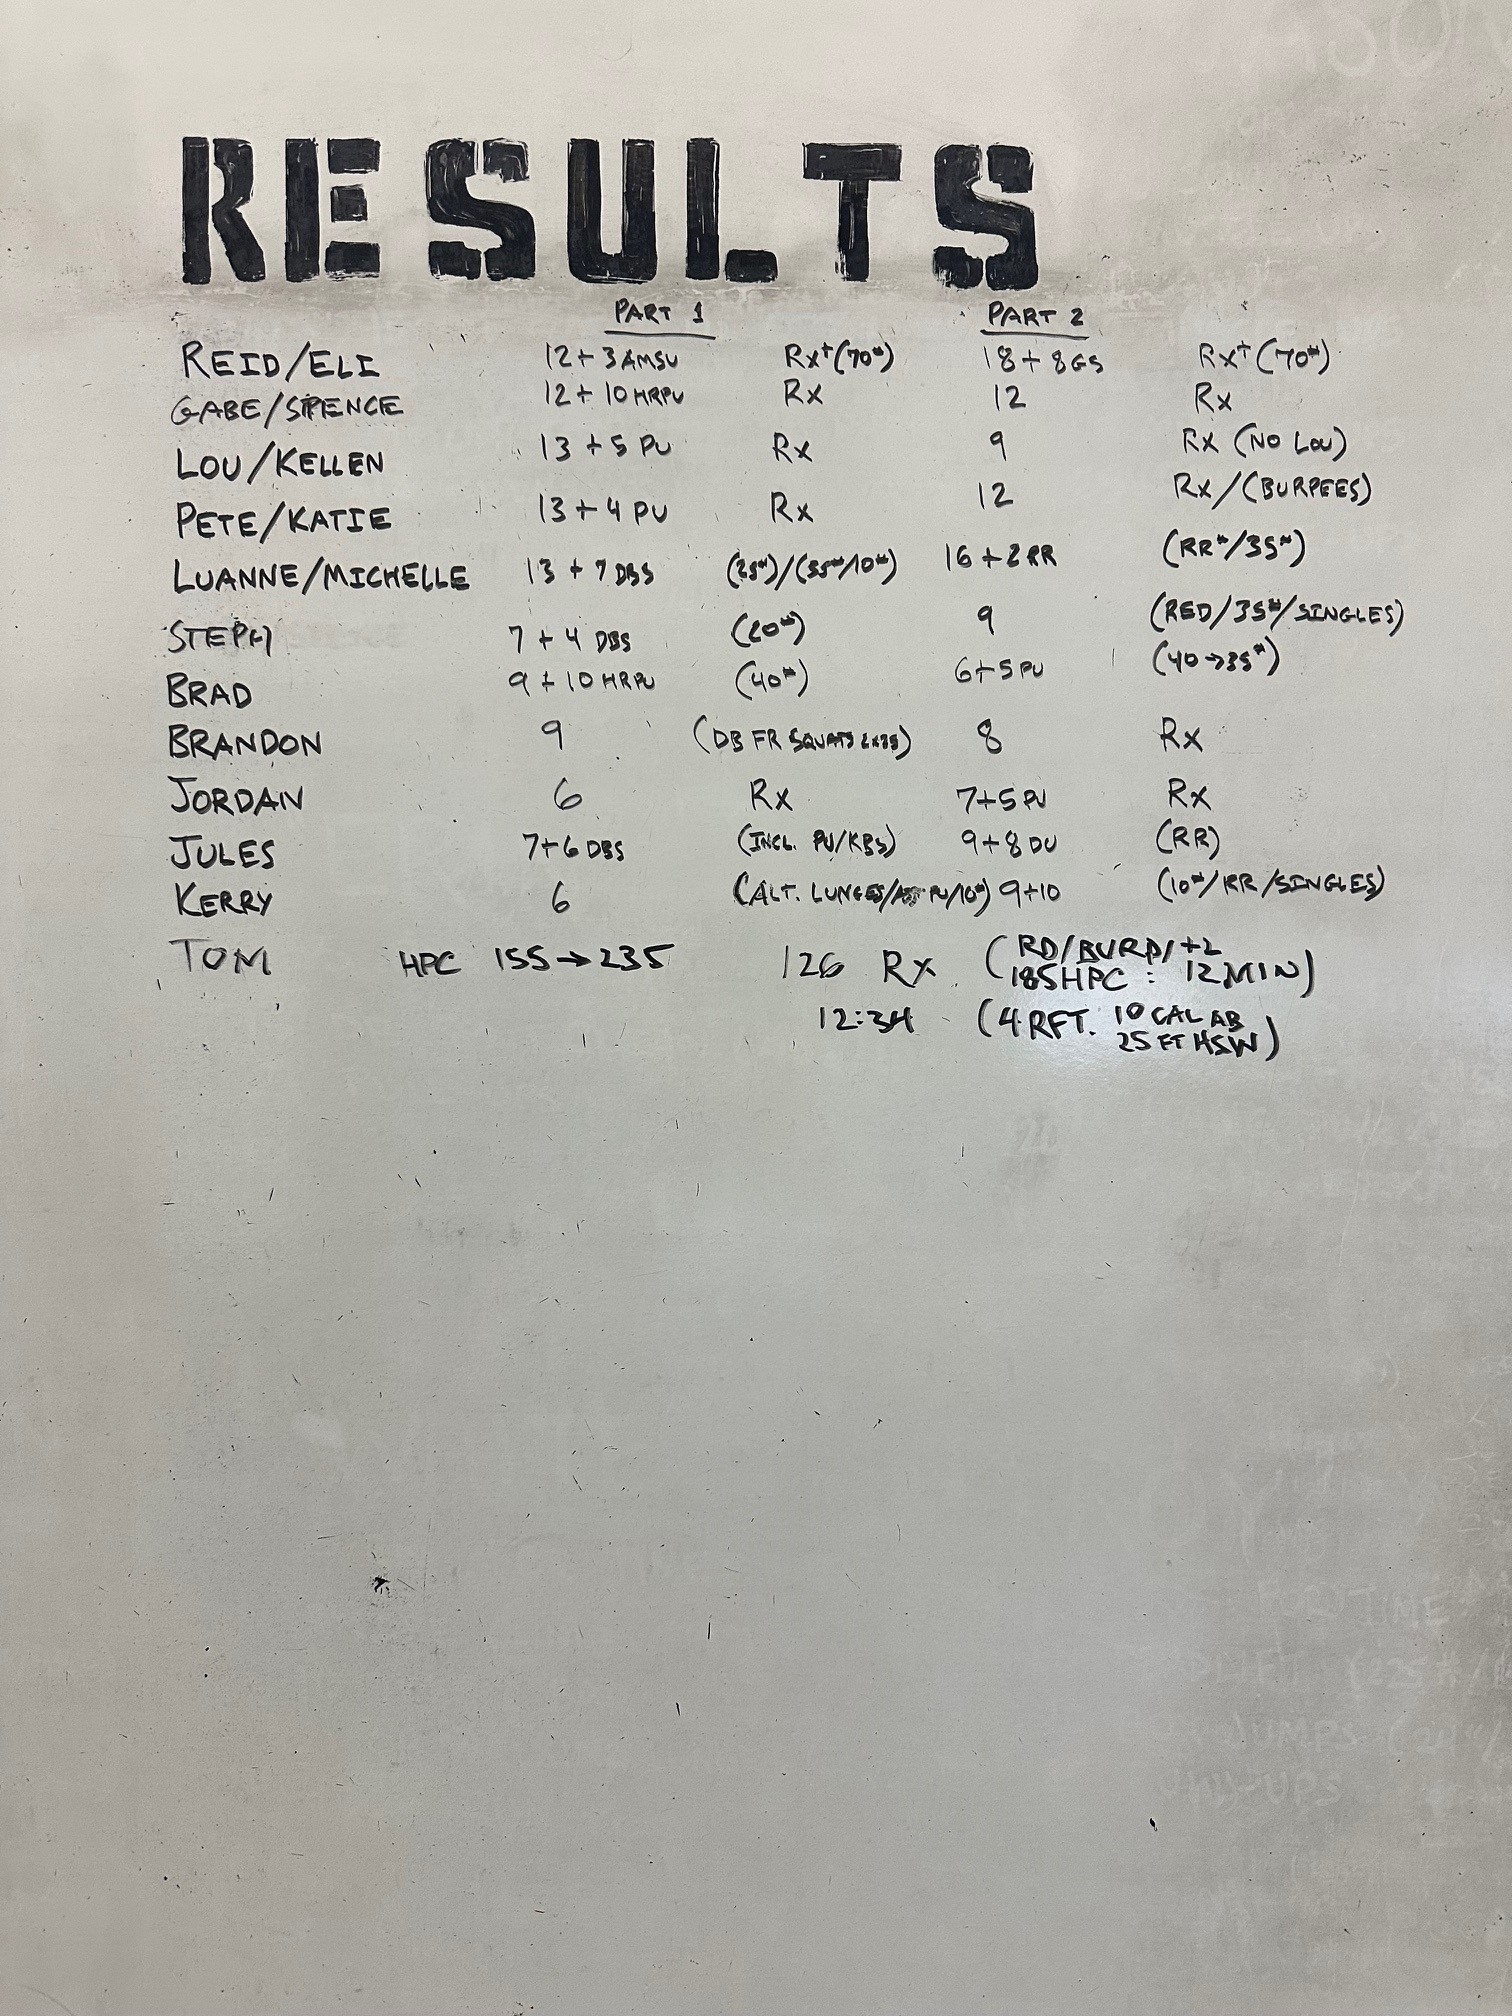 RESULTS
PART 1 PART 2
REID/ELI 12+3 AMSU Rx+(70#) 18+8GS Rx+(70#)
GABE/SPENCE 12+10 HRPU Rx 12 Rx
LOU/KELLEN 13+5 PU Rx 9 Rx (NO LOU)
PETE/KATIE 13+4 PU Rx 12 Rx/(BURPEES)
LUANNE/MICHELLE 13+7 DBS (25#)/(35#/10#) 16+2 RR (RR#/35#)
STEPH 7+4 DBS (20#) 9 (RED/35#/SINGLES)
BRAD 9+10 HRPU (40#) 6+5 PU (40→35#)
BRANDON 9 (DB FR SQUATS 2x35) 8 Rx
JORDAN 6 Rx 7+5 PU Rx
JULES 7+6 DBS (INCL. PU/KBS) 9+8 DU (RR)
KERRY 6 (ALT. LUNGES/ PU/10#) 9+10 (10#/RR/SINGLES)
TOM HPC 155→235 126 Rx (RD/BURP/+2
185HPC : 12MIN)
12:34 (4RFT. 10 CAL AB
25 FT HSW)